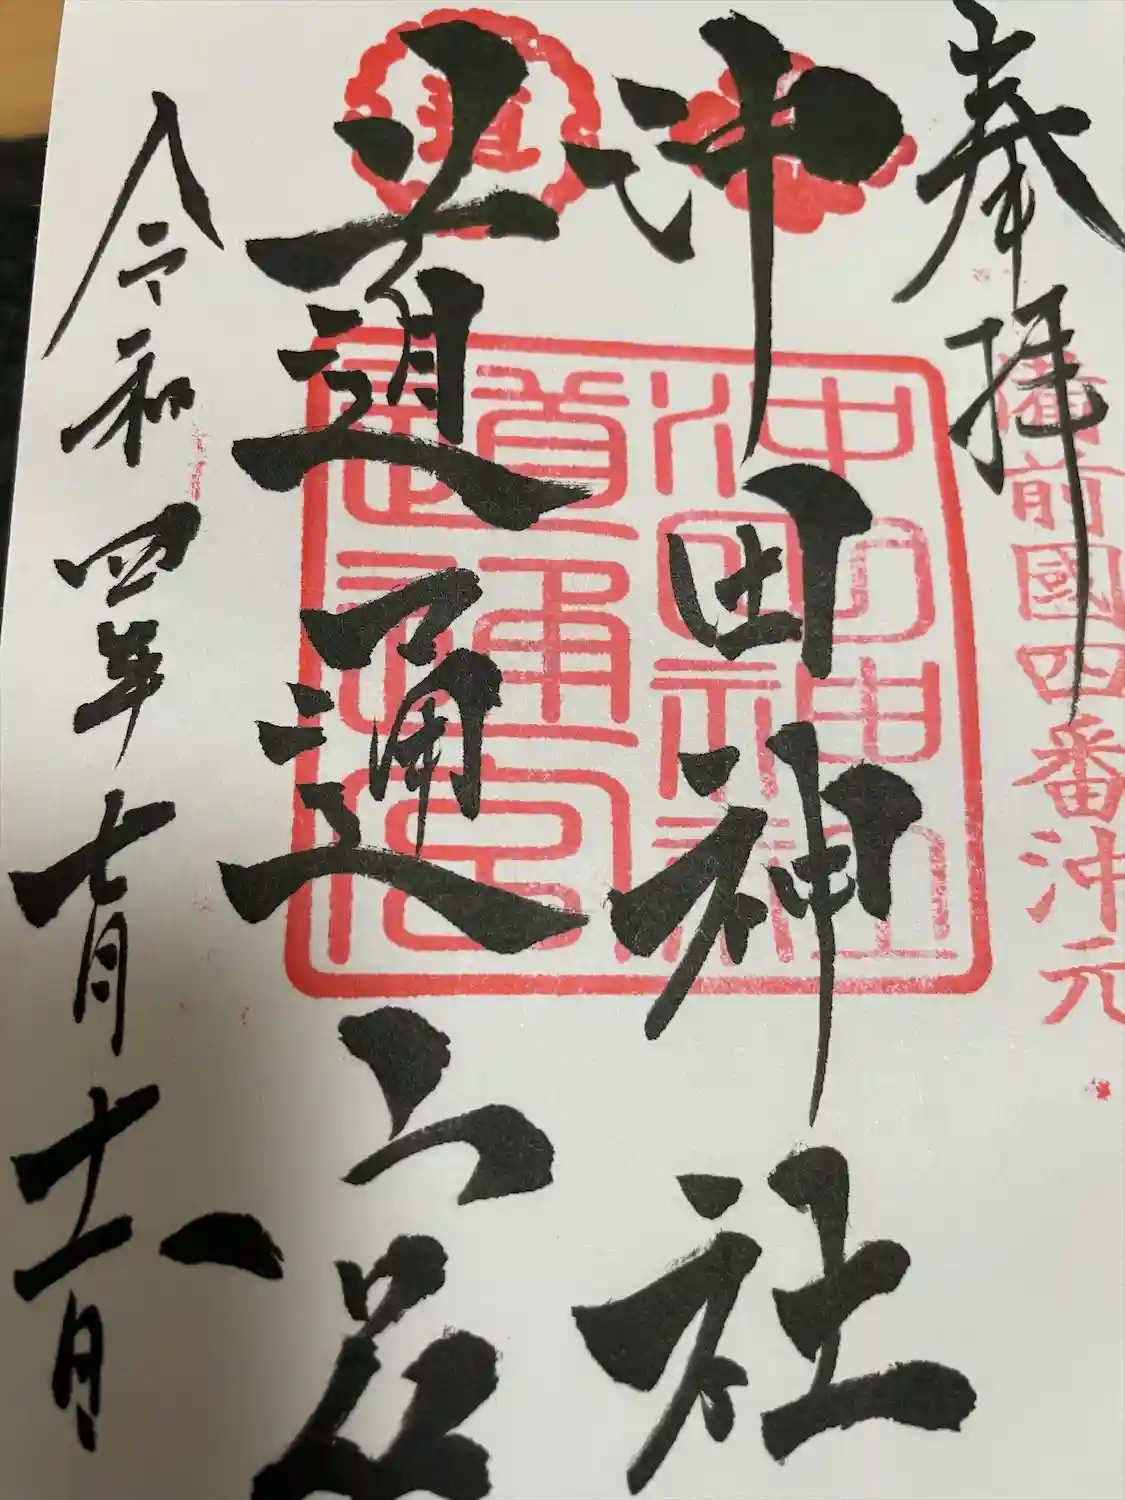 奉拝
備前國四番沖元
沖田神社
道通宮
沖田神社
道通宮
令和四年七月十八日